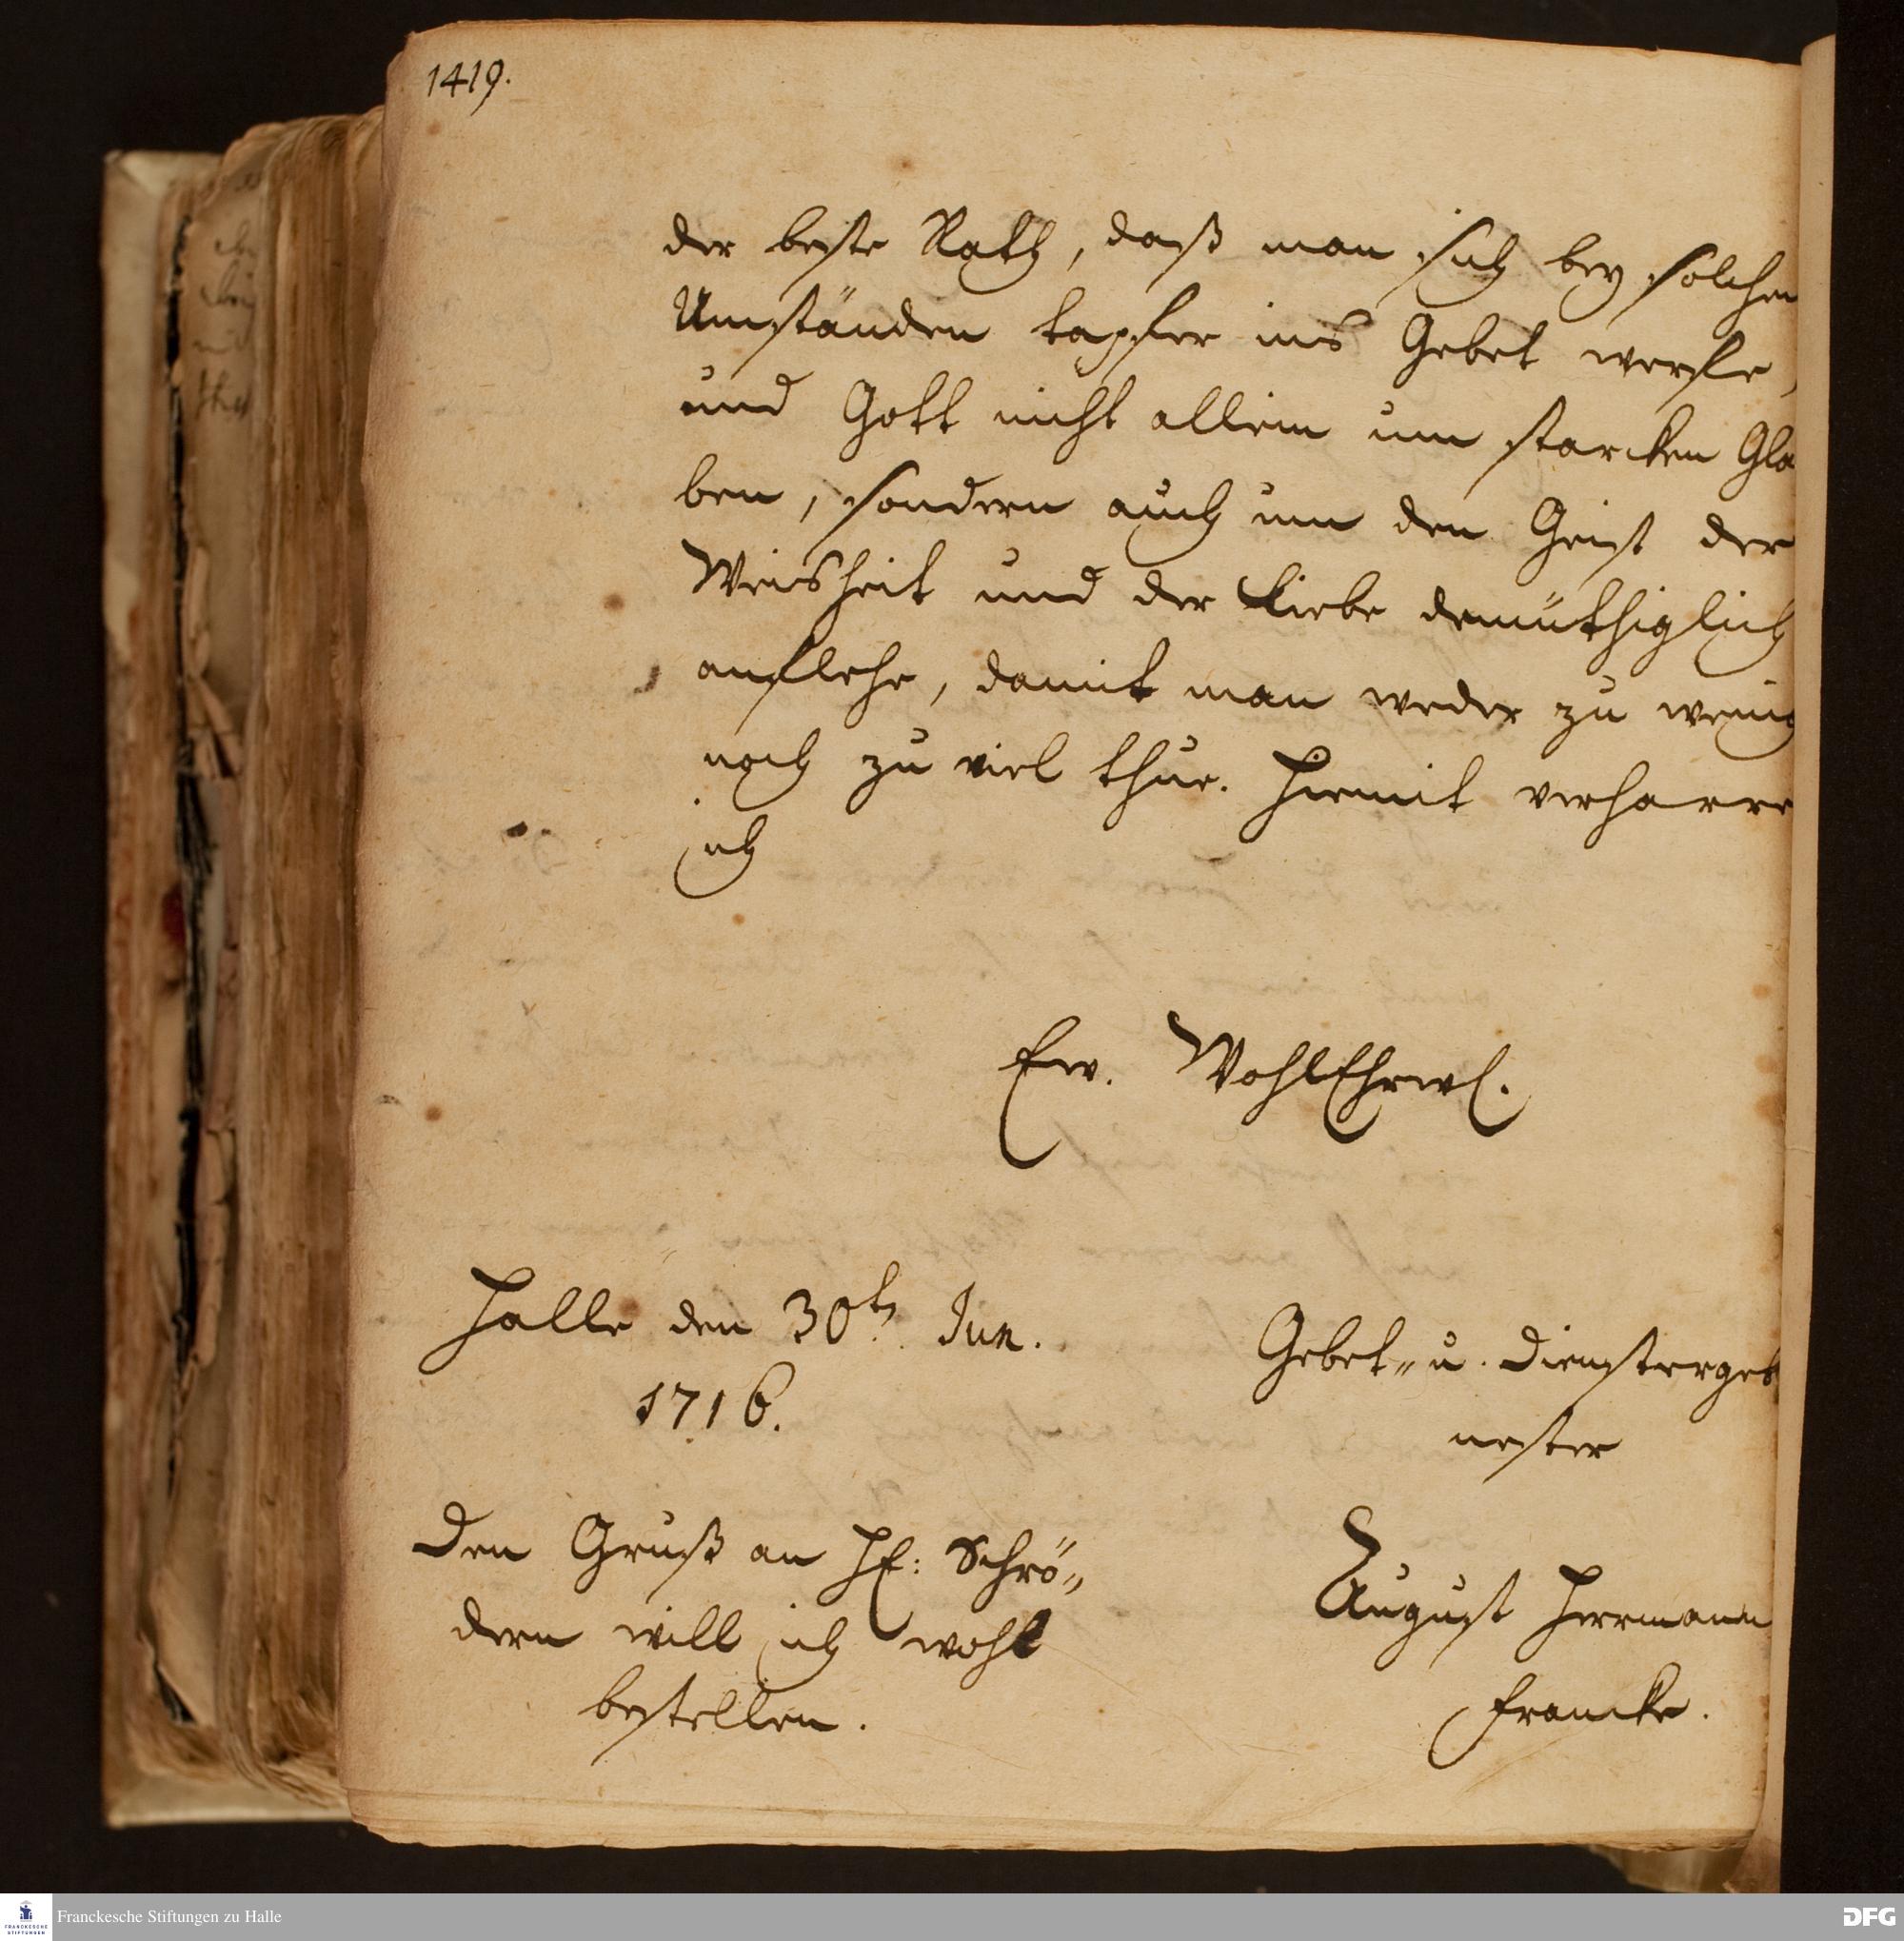 1419.
der beste Rath, daß man sich bey solchen
Umständen tapfer ins Gebet werffe,
und Gott nicht allein um starcken Gla
ben, sondern auch um den Geist der
Weisheit und der Liebe demüthiglich
anflehe, damit man weder zu wenig
noch zu viel thue. Hiemit verharre
ich
Ew. WohlEhrw.
Halle den 30t. Jun.
1716.
Gebet- u. Diensterge
nester
Den Gruß an H: Schrö-
dern will ich wohl
bestellen.
August Herrmann
Francke.
FRANCKESCHE
STIFTUNGEN
Franckesche Stiftungen zu Halle
DFG